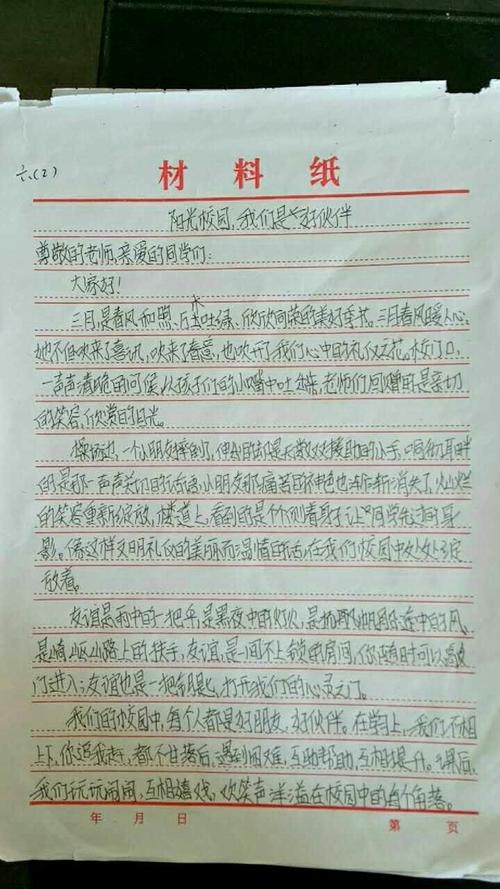 六、(2)
材料纸
阳光校园,我们是好伙伴
尊敬的老师,亲爱的同学们:
大家好!
三月是春风和煦、万木吐绿、欣欣向荣的美好季节。三月春风暖人心,
她不但吹来了喜讯,吹来了春意,也吹开了我们心中的礼仪之花,校门口,
一声声清脆的问候,从孩子们的小嘴中吐出来,老师们回赠的是亲切
的笑容,欣赏的目光。
操场边,一个小朋友摔倒了,伸出的却是无数双援助的小手,响彻耳畔
的是那一声声关切的话语,小朋友那痛苦的神色也渐渐消失了,灿烂
的笑容重新绽放,楼道上,看到的是一个个侧着身子让同学先走的身
影。像这样文明礼仪的美丽而温情的花,在我们校园中处处绽
放着。
友谊是雨中的一把伞,是黑夜中的灯火,是扬帆归途中的风,
是崎岖山路上的扶手,友谊,是一间不上锁的房间,你随时可以敲
门进入;友谊也是一把钥匙,打开我们的心灵之门。
我们的校园中,每个人都是好朋友,好伙伴。在学习上,我们不相
上下,你追我赶,都不甘落后,遇到困难,互助帮助,互相提升。课后,
我们玩玩闹闹,互相嬉戏,欢笑声洋溢在校园中的各个角落。
年 月 日 第 页